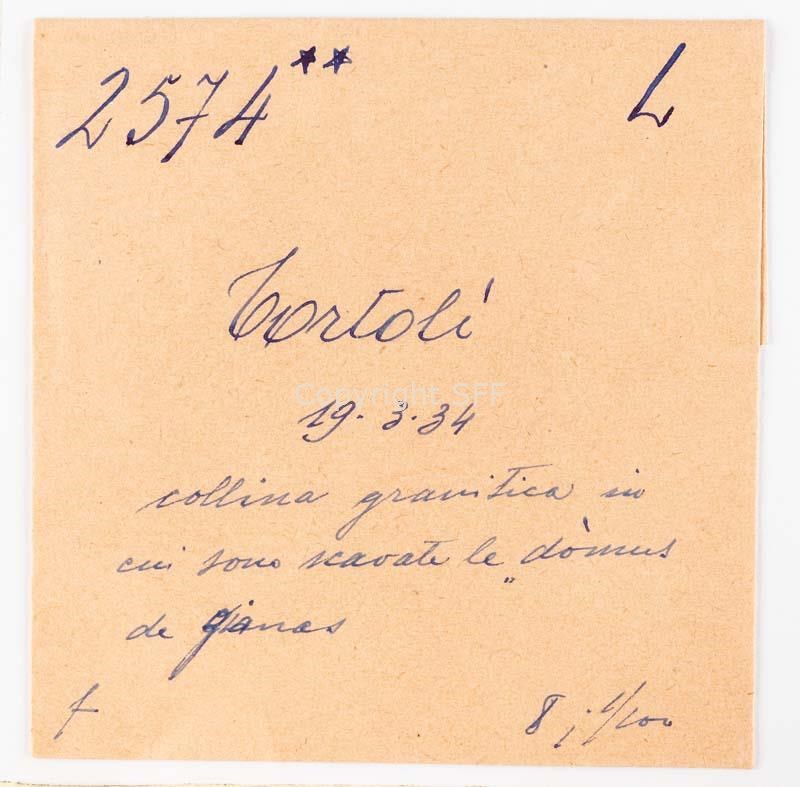 2574** L
Tortolì
Copyright SFF
19.3.34
collina granitica in
cui sono scavate le „dòmus
de gianas
f 8 ; 1/100